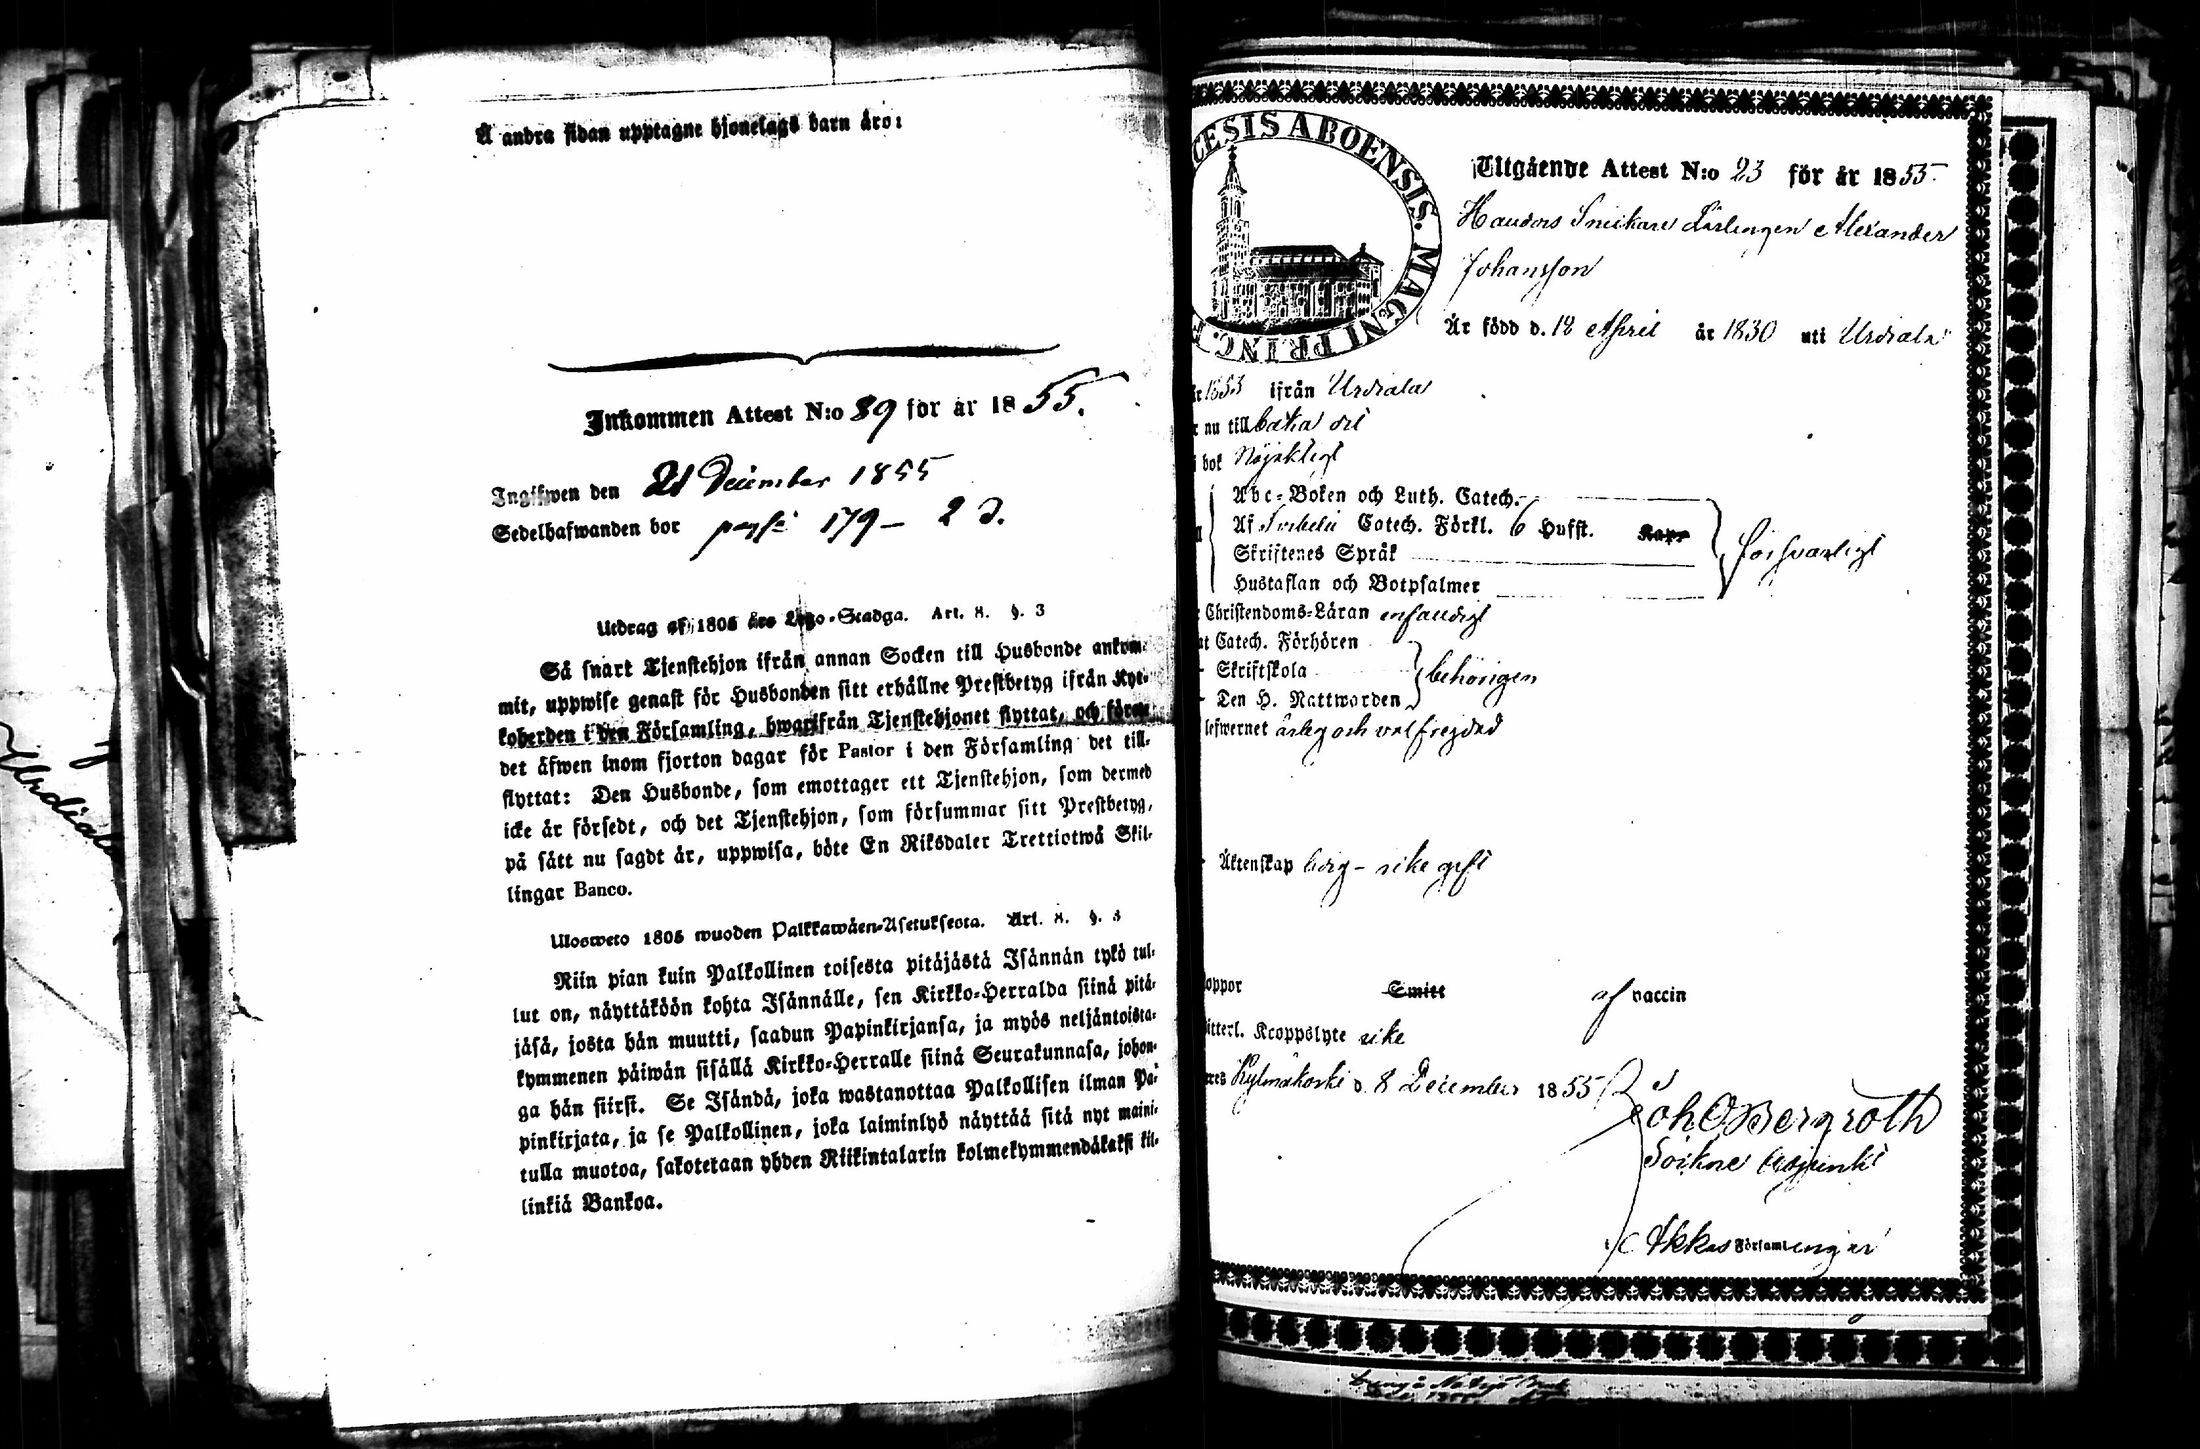 Å andra sidan upptagne hjonelags barn äro:
Inkommen Attest N:o 89 för år 1855.
Ingifwen den 21 December 1855
Sedelhafwanden bor 179 – 2 d.
Utdrag af 1805 års Lego-Stadga. Art. 8. §. 3
Så snart Tjenstehjon ifrån annan Socken till Husbonde ankom-
mit, uppwise genast för Husbonden sitt erhållne Prestbetyg ifrån Kyr-
koherden i den Församling, hwarifrån Tjenstehjonet flyttat, och förete
det äfwen inom fjorton dagar för Pastor i den Församling det till-
flyttat: Den Husbonde, som emottager ett Tjenstehjon, som dermed
icke är försedt, och det Tjenstehjon, som försummar sitt Prestbetyg,
på sätt nu sagdt är, uppwisa, böte En Riksdaler Trettiotwå Skil-
lingar Banco.
Ulosweto 1805 wuoden Palkkawäen-Asetuksesta. Art. 8. §. 3
Niin pian kuin Palkollinen toisesta pitäjästä Isännän tykö tul-
lut on, näyttäköön kohta Isännälle, sen Kirkko-Herralda siinä pitä-
jäsä, josta hän muutti, saadun Papinkirjansa, ja myös neljäntoista-
kymmenen päiwän sisällä Kirkko-Herralle siinä Seurakunnasa, johon-
ga hän siirsi. Se Isändä, joka wastanottaa Palkollisen ilman Pa-
pinkirjata, ja se Palkollinen, joka laiminlyö näyttää sitä nyt maini-
tulla muotoa, sakotetaan yhden Riikintalarin kolmekymmendäkaksi kil-
linkiä Bankoa.
Urdiala
CESIS ABOENSIS. MAGNI PRINC. F
Utgående Attest N:o 23 för år 1855.
Snickare Lärlingen Alexander
Johansson
Är född d. 12 April år 1830 uti Urdiala
år 1853 ifrån Urdiala
nu tillbaka dit
i bok Nöjaktigt
Abc-Boken och Luth. Catech.
Af Svebelii Catech. Förkl. 6 Hufst. Kapr
Skriftenes Språk
försvarligt
Hustaflan och Botpsalmer
Christendoms-Läran enfaldigt
Catech. Förhören
Skriftskola
behörigen
Den H. Nattwarden
lefwernet ärlig och välfrejdad
Äktenskap ledig – icke gift
koppor Smitt af vaccin
itterl. Kroppslyte icke
Kylmäkoski d. 8 December 1855
Joh O Bergroth
Sockne Adjunkt
i Akkas Församlingar